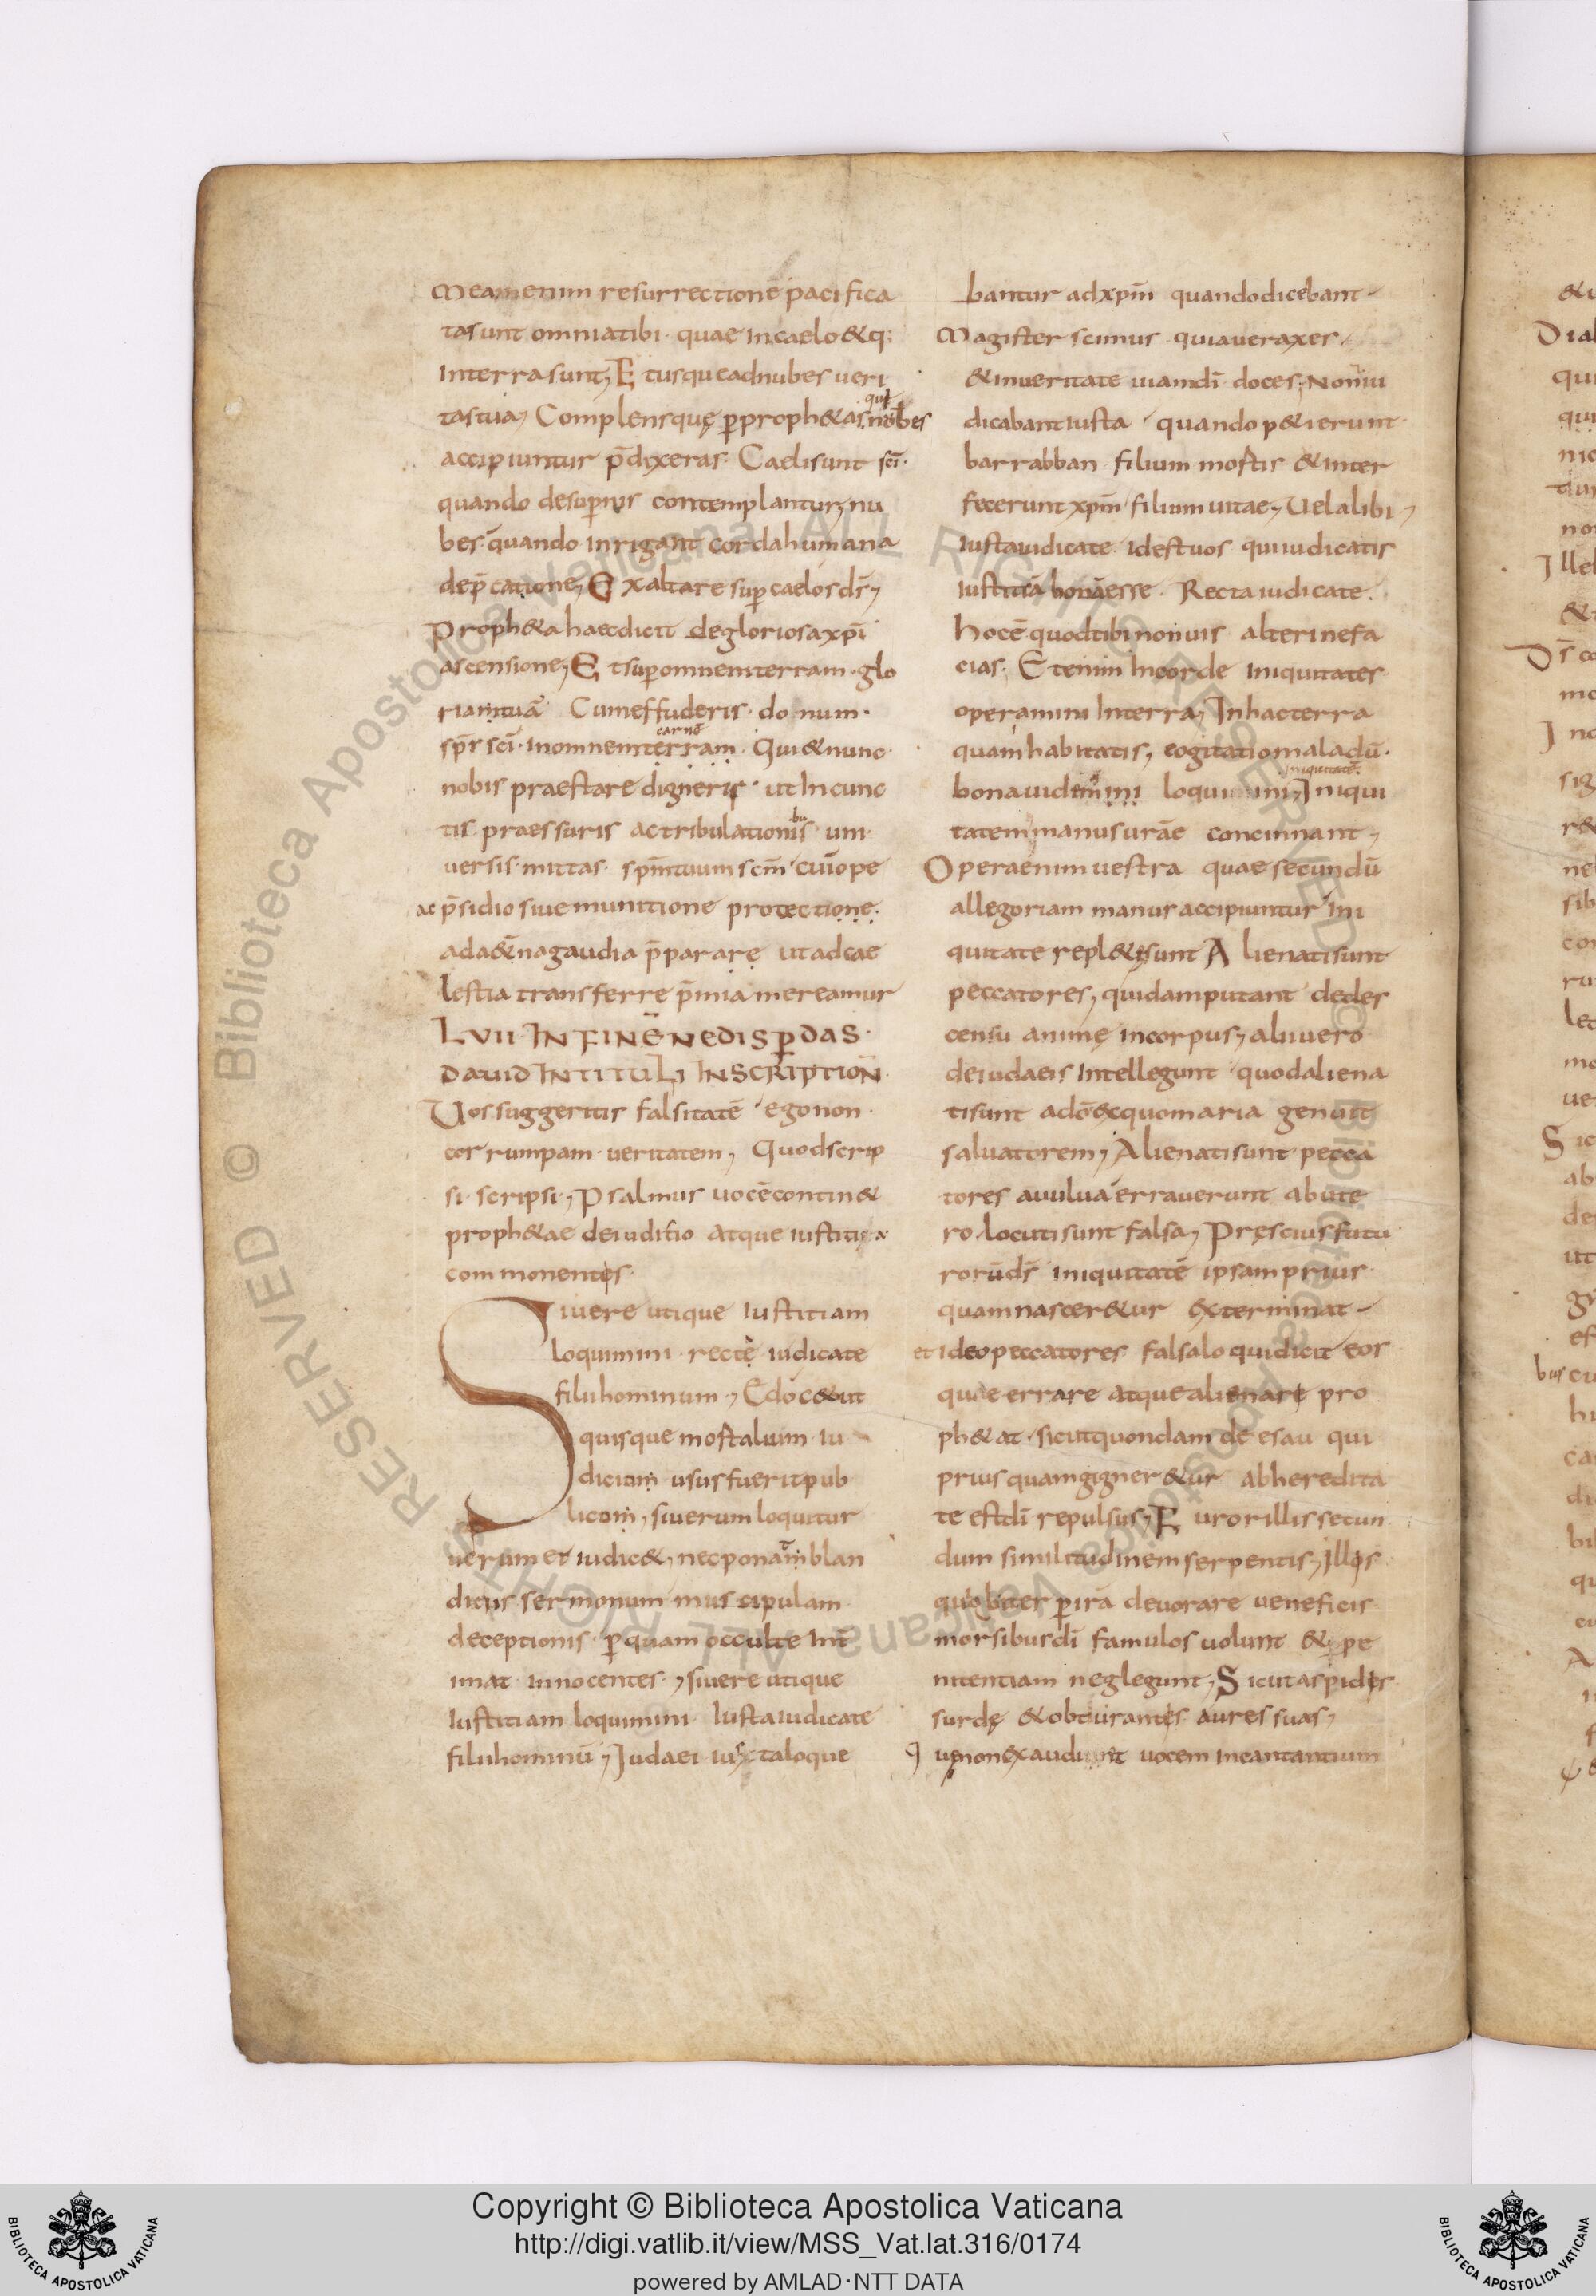 meamenim resurrectionē pacifica
tasunt omniatibi · quae incaelo & q;
interrasunt, Etusqueadnubes ueri
tastua, Complensquę ꝑproph&as nubes
qui
accipiuntur p̄dixeras · Caelisunt sc̄i ·
quando desuꝑius contemplantur, nu
bes quando inrigant cordahumana
dep̄catione, Exaltare suꝑ caelos ds̄,
Proph&a haecdicit degloriosaxp̄i
ascensione, Etsuꝑomnemterram · glo
riamtuā Cumeffuderis · do num ·
carnē
sp̄r sc̄i · inomnemterram · Qui&nunc ·
nobis praestare digneris · ut incunc
tis praessuris actribulationis · uni
bu
uersis mittas · sp̄mtuum sc̄m cuiuope
ac p̄sidio siuemunitione protectione ·
ada&nagaudia p̄parare utadcae
lestia transferre p̄mia mereamur
LVII IN FINĒ NE DISꝑDAS ·
DAUID IN TITULI INSCRIPTIOÑ
Uossuggeritis falsitatē egonon ·
corrumpam · ueritatem, Quodscrip
si · scripsi, Psalmus uocēcontin&
proph&ae deiuditio atque iustitia
commonentes ·
Siuere utique iustitiam
loquimini · rectę iudicate
filiihominum, Edoc&ut
quisquemostalium · iu
diciom · ususfueritpub
licom, siuerumloquitur
uerumet iudic&, necponāmblan
t
diciis sermonum muscipulam
deceptionis · ꝑquam occulte int
imat · innocentes, siuere utique
iustitiam loquimini · iustaiudicate
filiihominū, Iudaei iuxtaloque
bantur adxp̄m quandodicebant
Magister scimus · quiaueraxes
&inueritate uiamdī doces, Noniu
dicabantiusta quando p&ierunt ·
barrabban filium mostis &inter
fecerunt xp̄m filium uitae, Uelalibi,
iustaiudicate idestuos quiiudicatis
iustitiā bonāesse · Recta iudicate ·
hocē quodtibinonuis alterinefa
cias · Etenim incorde iniquitates ·
operamini interra, Inhacterra
quamhabitatis, cogitatiomaladū ·
bonauidemini loquimini, Iniqui
iniquitatē
tatem manusurāe concinnant,
Operaenimuestra quaesecundū
allegoriam manusaccipiuntur ini
quitate repl&ę sunt Alienatisunt
peccatores, quidamputant dedes
censu animę incorpus, aliiuero
deiudaeis intellegunt quodaliena
tisunt adō exquomaria genuit
saluatorem, Alienatisunt pecca
tores auulua errauerunt abute
ro locutisunt falsa, Pręsciusfutu
rorūds̄ iniquitatē ipsamprius
quamnascer&ur exterminat
et ideopeccatores falsaloquidicit eos
quae errare atquealienare pro
ph&at · sicutquondam de esau qui
priusquamgigner&ur abheredita
te estdī repulsus, Furorillissecun
dum similitudinemserpentis, Illos
quobiter ꝑirā deuorare ueneficis
morsibusdī famulosuolunt & pe
nitentiam neglegunt, Sicutaspides
surdę &obturantes aures suas,
Quenonexaudiunt uocem incantantium
Copyright © Biblioteca Apostolica Vaticana
http://digi.vatlib.it/view/MSS_Vat.lat.316/0174
powered by AMLAD·NTT DATA